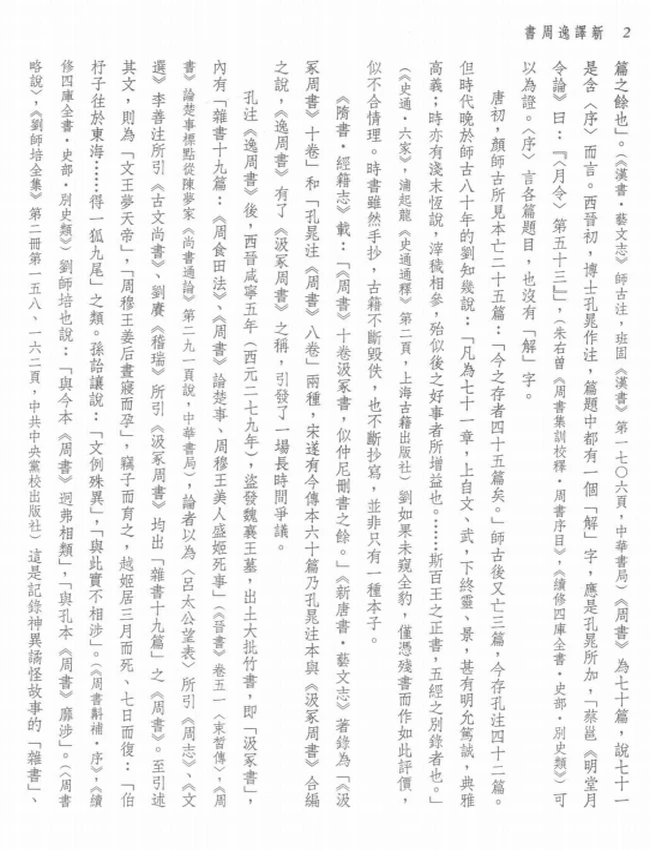 2　新譯逸周書
篇之餘也」。(《漢書・藝文志》師古注，班固《漢書》第一七〇六頁，中華書局)《周書》為七十篇，說七十一
是含〈序〉而言。西晉初，博士孔晁作注，篇題中都有一個「解」字，應是孔晁所加，「蔡邕《明堂月
令論》曰：『〈月令〉第五十三』」，(朱右曾《周書集訓校釋・周書序目》，《續修四庫全書・史部・別史類》)可
以為證。〈序〉言各篇題目，也沒有「解」字。
唐初，顏師古所見本亡二十五篇：「今之存者四十五篇矣。」師古後又亡三篇，今存孔注四十二篇。
但時代晚於師古八十年的劉知幾說：「凡為七十一章，上自文、武，下終靈、景，甚有明允篤誠，典雅
高義；時亦有淺末恆說，滓穢相參，殆似後之好事者所增益也。……斯百王之正書，五經之別錄者也。」
(《史通・六家》，浦起龍《史通通釋》第二頁，上海古籍出版社)劉如果未窺全豹，僅憑殘書而作如此評價，
似不合情理。時書雖然手抄，古籍不斷毀佚，也不斷抄寫，並非只有一種本子。
《隋書・經籍志》載：「《周書》十卷汲冢書，似仲尼刪書之餘。」《新唐書・藝文志》著錄為「《汲
冢周書》十卷」和「孔晁注《周書》八卷」兩種，宋遂有今傳本六十篇乃孔晁注本與《汲冢周書》合編
之說，《逸周書》有了《汲冢周書》之稱，引發了一場長時間爭議。
孔注《逸周書》後，西晉咸寧五年（西元二七九年），盜發魏襄王墓，出土大批竹書，即「汲冢書」，
內有「雜書十九篇：《周食田法》、《周書》論楚事、周穆王美人盛姬死事」(《晉書》卷五一〈束皙傳〉，《周
書》論楚事標點從陳夢家《尚書通論》第二九一頁說，中華書局)，論者以為〈呂太公望表〉所引《周志》、《文
選》李善注所引《古文尚書》、劉賡《稽瑞》所引《汲冢周書》均出「雜書十九篇」之《周書》。至引述
其文，則為「文王夢天帝」，「周穆王姜后晝寢而孕」，竊子而育之，越姬居三月而死、七日而復：「伯
杼子往於東海……得一狐九尾」之類。孫詒讓說：「文例殊異」，「與此實不相涉」。(《周書斠補・序》，《續
修四庫全書・史部・別史類》)劉師培也說：「與今本《周書》迥弗相類」，「與孔本《周書》靡涉」。(〈周書
略說〉，《劉師培全集》第二冊第一五八、一六二頁，中共中央黨校出版社)這是記錄神異譎怪故事的「雜書」、